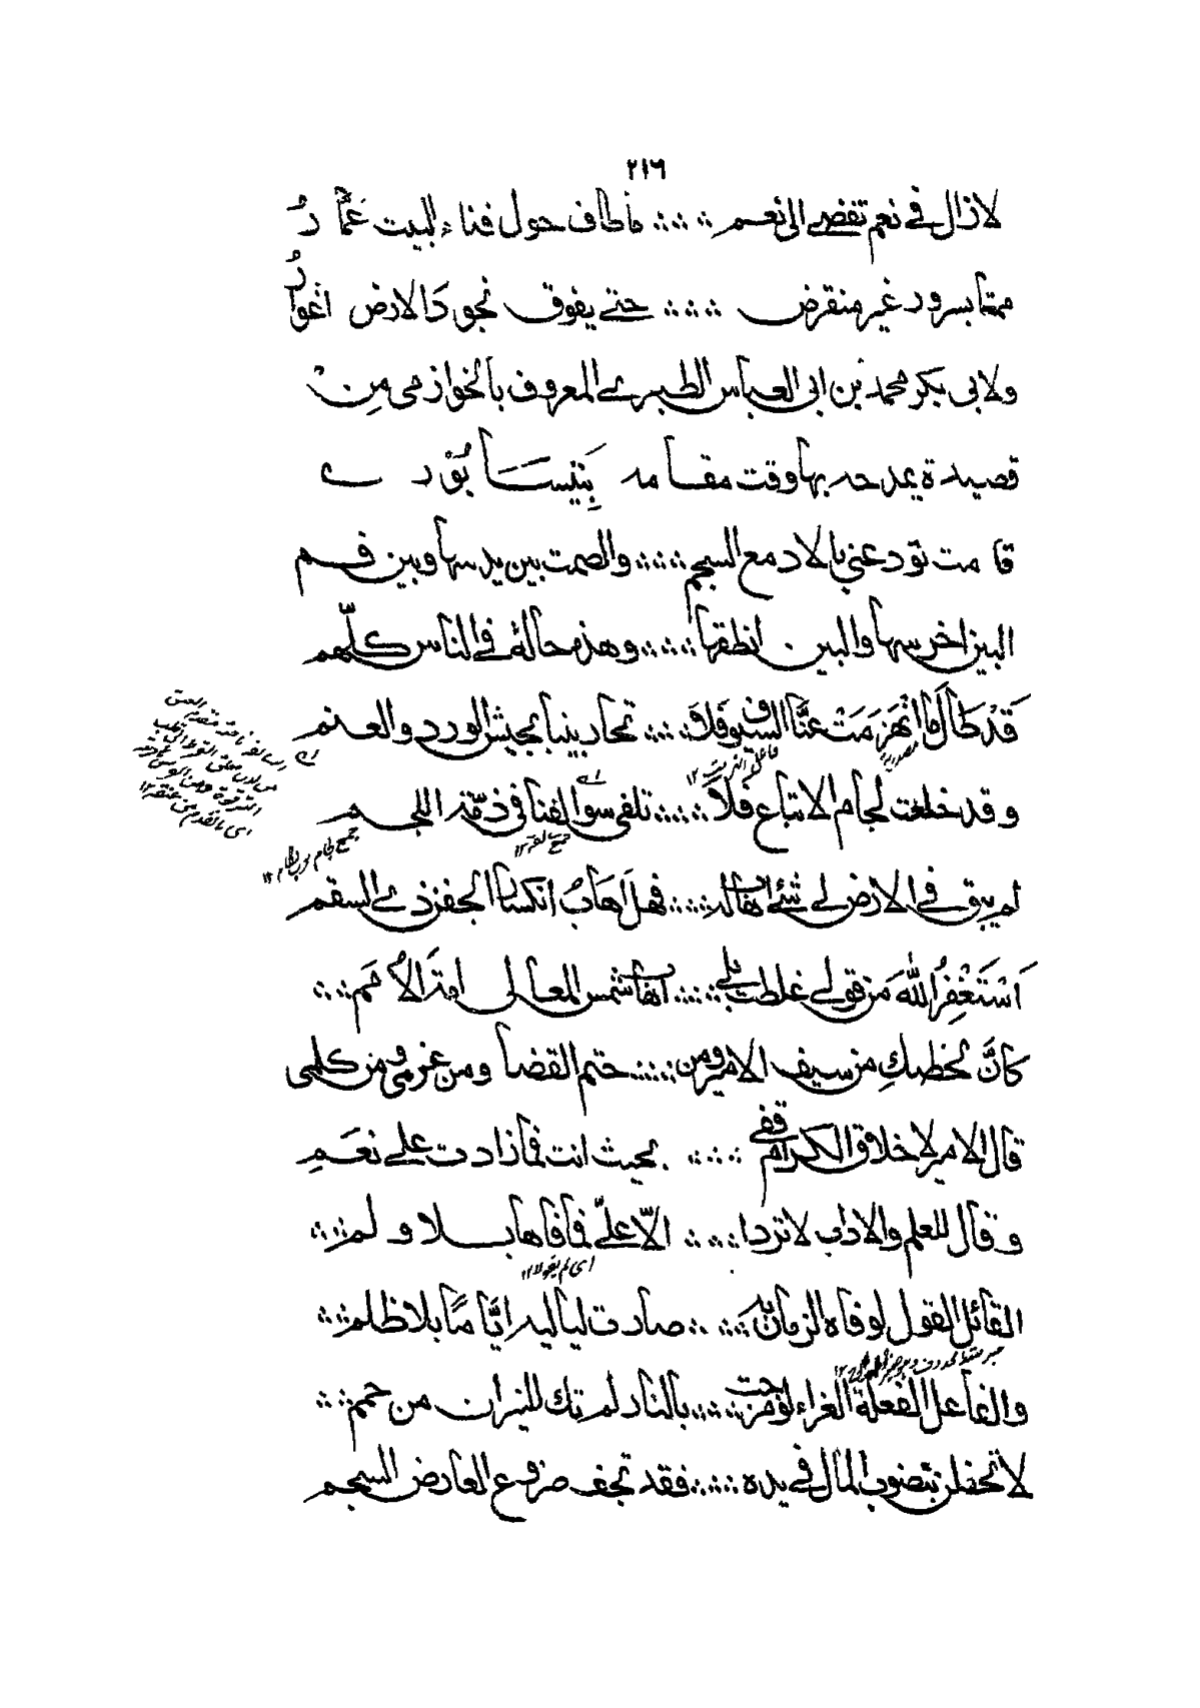 ٢١٦
لازال في نعم تفضي الى نعم ∴ ∴ ماطاف حول فناء البيت عمّارُ
ممتعا بسرور غير منقرض ∴ ∴ حتى يفوق نجود الارض اغوارُ
ولابي بكر محمد بن ابي العباس الطبري المعروف بالخوارزمي مِنْ
قصيدة يمدحه بها وقت مقامه بِنَيْسَابُوْرَ
قامت تودعني بالادمع السجم ∴ ∴ والصمت بين يديها وبين فم
البين اخرسها والبين انطقها ∴ ∴ وهذه حالة في الناس كلّهم
قَدْ طَالَ مَا انْهَزَمَتْ عنَّا السيوف فَلاَ ∴ ∴ تحاربينا بجيش الورد والعنم
وقد خلعت لجام الاتباع فلا ∴ ∴ تلفى سوا لفنا في ذمّة اللجم
لم يبق في الارض لي شئ اهاب له ∴ ∴ فهل اَهَابُ انكسار الجفن ذي السقم
اَسْتَغْفِرُ اللّٰهَ من قولي غلطت بلى ∴ ∴ اهاب شمس المعالي امة الاُمَم ∴
كانَّ لحظكِ من سيف الامير ومن ∴ ∴ حتم القضا ومن عزمي ومن كلمي
قال الامير لاخلاق الكرام قفي ∴ ∴ بحيث انت فما زادت على نعَمِ
وقال للعلم والاداب لا تردا ∴ ∴ الاّ علىّ فما فاها بـلا ولم ∴
اى لم يقولا ١٢
القائل القول لوفاه الزمان به ∴ ∴ صارت لياليه ايّامًا بلا ظلم ∴
والفاعل الفعلة الغراء لو مزجت ∴ ∴ بالنار لم تك للنيران من حمم ∴
لا تحفلن بنضوب المال في يده ∴ ∴ فقد تجف ضروع العارض السجم